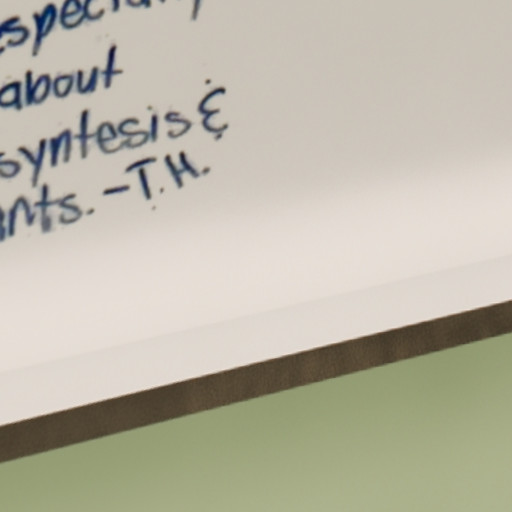 especially
about
syntesis &
nts. -T.H.